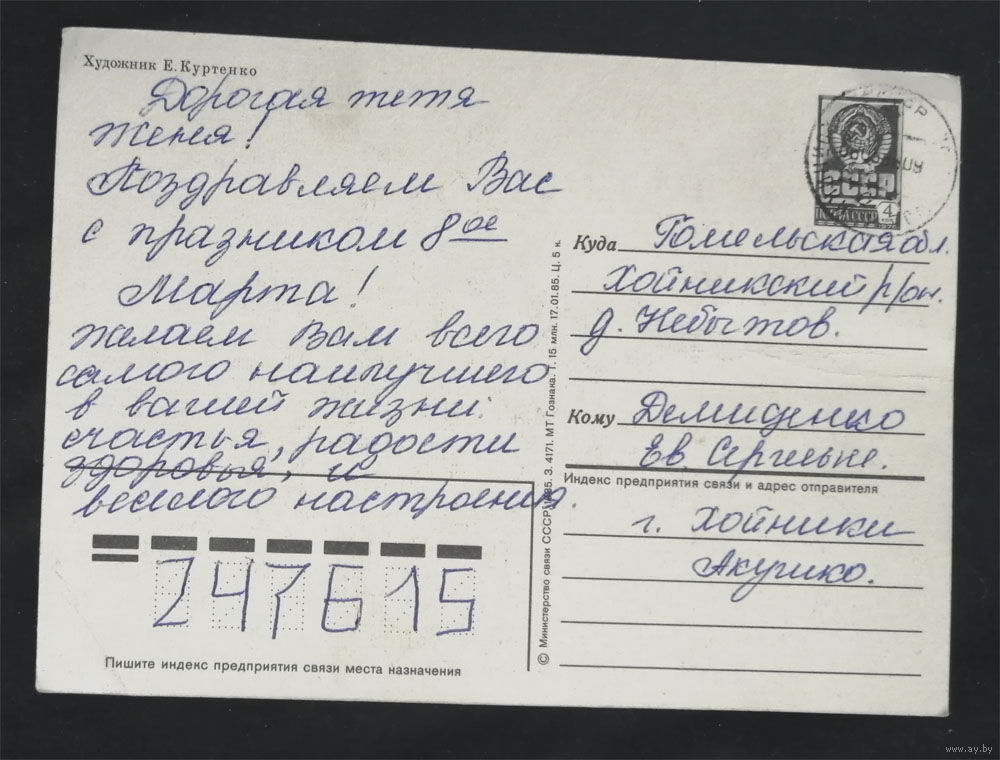 Художник Е. Куртенко
Дорогая тетя
Женя!
Поздравляем Вас
с празником 8ое
Марта!
желаем Вам всего
самого наилучшего
в вашей жизни:
счастья, радости
здоровья, и
веселого настроения.
Пишите индекс предприятия связи места назначения
247615
© Министерство связи СССР, 1985. З. 4171. МТ Гознака. Т. 15 млн. 17.01.85. Ц. 5 к.
СССР
ПОЧТА СССР
4
Куда Гомельская обл.
Хойникский р/он.
д. Небытов.
Кому Демиденко
Ев. Сергеевне.
Индекс предприятия связи и адрес отправителя
г. Хойники
www.ay.by